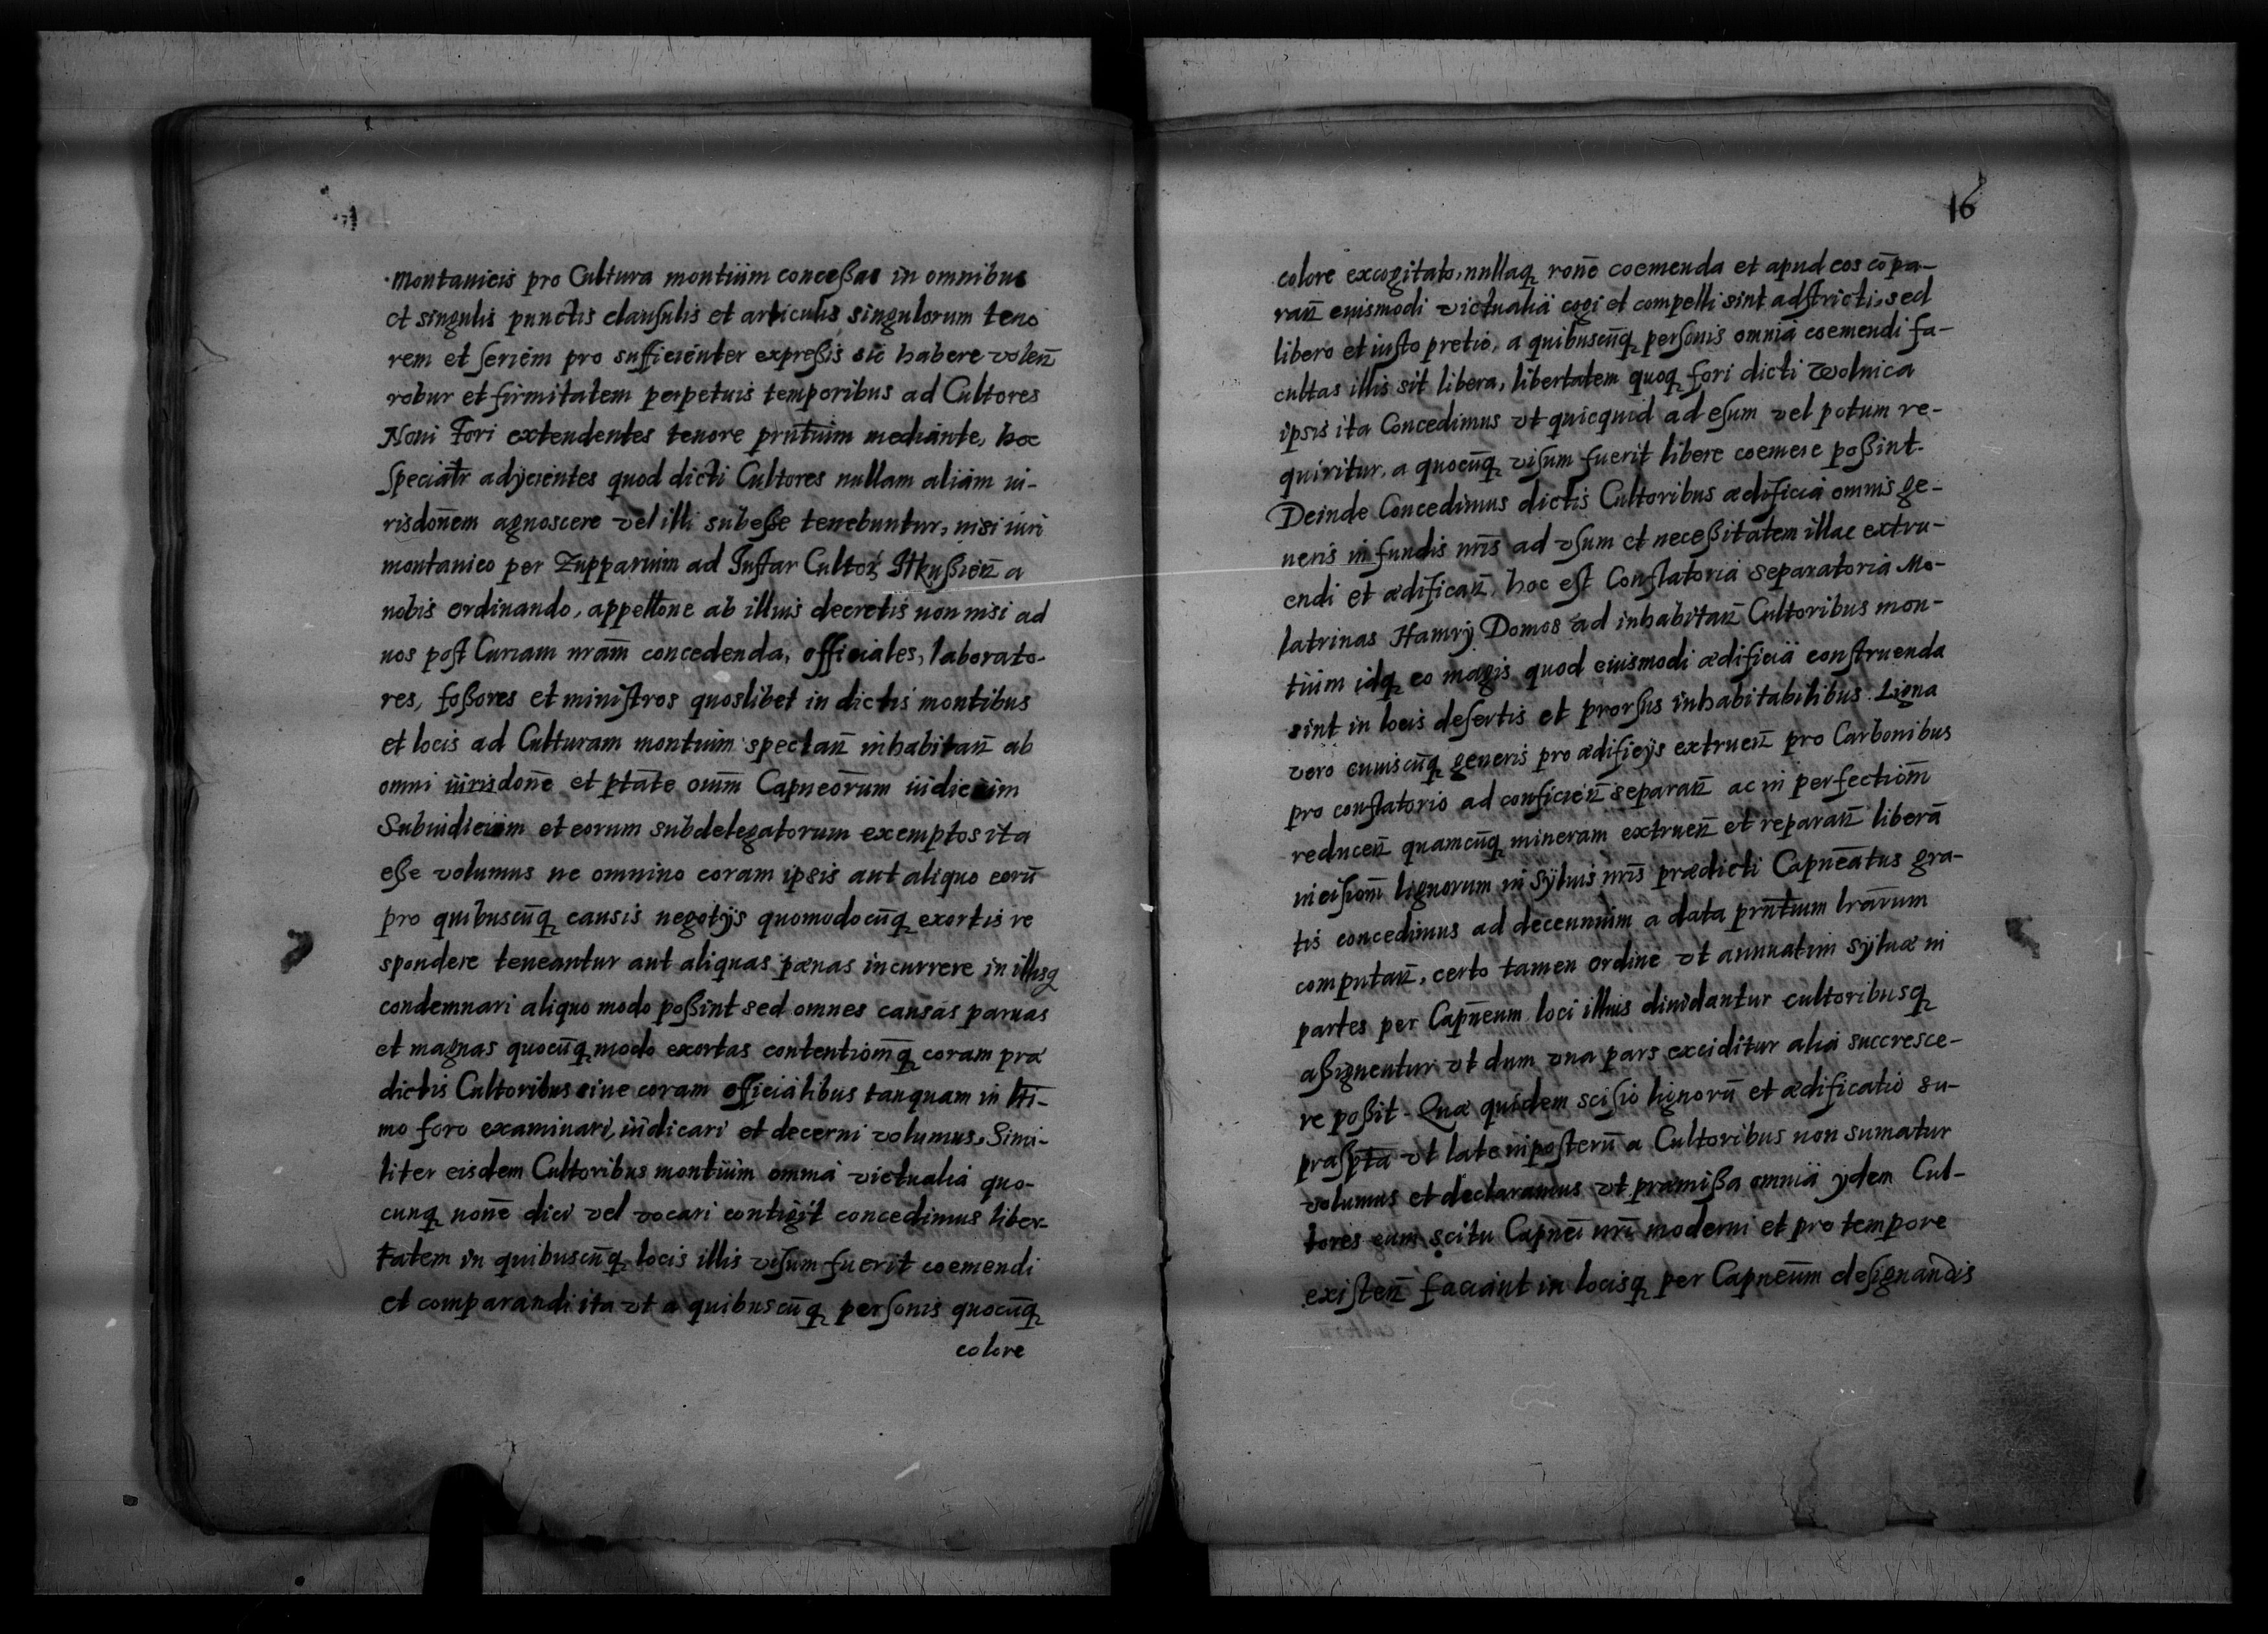 montanicis pro Cultura montium conceßas in omnibus
et singulis punctis clausulis et articulis singulorum teno
rem et seriem pro sufficienter expreßis sic habere volen̄
robur et firmitatem perpetuis temporibus ad Cultores
Noui Fori extendentes tenore prn̄tium mediante, hoc
Specialr̄ adÿcientes quod dicti Cultores nullam aliam iu-
risdon̄em agnoscere vel illi subeße tenebuntur, nisi iuri
montanico per Zupparium ad Instar Cultor̄ Ilkußien̄ a
nobis ordinando, appellon̄e ab illius decretis non nisi ad
nos post Curiam nr̄am concedenda, officiales, laborato-
res, foßores et ministros quoslibet in dictis montibus
et locis ad Culturam montium spectan̄ inhabitan̄ ab
omni iurisdon̄e et ptāte oium̄ Capneorum iudicium
Subiudicium et eorum subdelegatorum exemptos ita
eße volumus ne omnino coram ipsis aut aliquo eorū
pro quibuscūq causis negotÿs quomodocūq exortis re
spondere teneantur aut aliquas pænas incurrere in illasq
condemnari aliquo modo poßint sed omnes causas paruas
et magnas quocūq modo exortas contentiom̄q coram præ
dictis Cultoribus siue coram officialibus tanquam in lti-
mo foro examinari, iudicari et decerni volumus. Simi-
liter eisdem Cultoribus montium omnia victualia quo-
cunq non̄e dici vel vocari contigit concedimus liber-
tatem in quibuscūq locis illis visum fuerit coemendi
et comparandi ita vt a quibuscūq personis quocūq
colore
16
colore excogitato, nullaq ron̄e coemenda et apud eos cōpa-
ran̄ eiusmodi victualia cogi et compelli sint adstricti, sed
libero et iusto pretio, a quibuscūq personis omnia coemendi fa-
cultas illis sit libera, libertatem quoq fori dicti wolnica
ipsis ita Concedimus vt quicquid ad esum vel potum re-
quiritur, a quocūq visum fuerit libere coemere poßint.
Deinde Concedimus dictis Cultoribus ædificia omnis ge-
neris in fundis nr̄is ad vsum et neceßitatem illac extru-
endi et ædifican̄, hoc est Conflatoria separatoria Mo-
latrinas Hamrÿ Domos ad inhabitan̄ Cultoribus mon-
tium idq eo magis quod eiusmodi ædificia construenda
sint in locis desertis et prorsus inhabitabilibus. Ligna
vero cuiuscūq generis pro ædificÿs extruen̄ pro Carbonibus
pro conflatorio ad conficien̄ separan̄ ac in perfectiom̄
reducen̄ quamcūq mineram extruen̄ et reparan̄ liberā
incisiom̄ lignorum in syluis nr̄is prædicti Capnēatus gra-
tis concedimus ad decennium a data prn̄tium lrārum
computan̄, certo tamen ordine vt annuatim syluæ in
partes per Capnēum loci illius diuidantur cultoribusq
aßignentur vt dum vna pars exciditur alia succresce-
re poßit. Quæ quidem scisio lignorū et ædificatio su-
praspta vt late inposterū a Cultoribus non sumatur
volumus et declaramus vt præmißa omnia ÿdem Cul-
tores cum scitu Capnēi nr̄i moderni et pro tempore
existen̄ faciant in locisq per Capneūm designandis